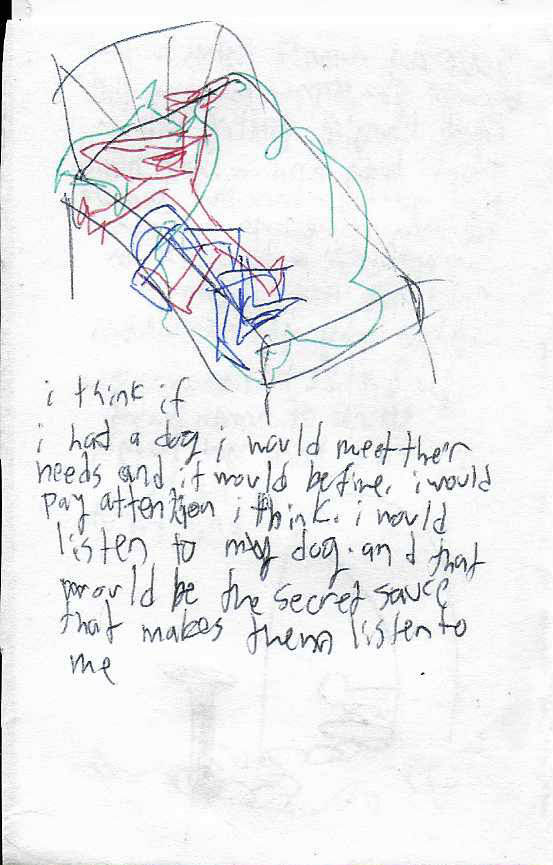 i think if
i had a dog i would meet their
needs and it would be fine. i would
pay attention i think. i would
listen to my dog. and that
would be the secret sauce
that makes them listen to
me